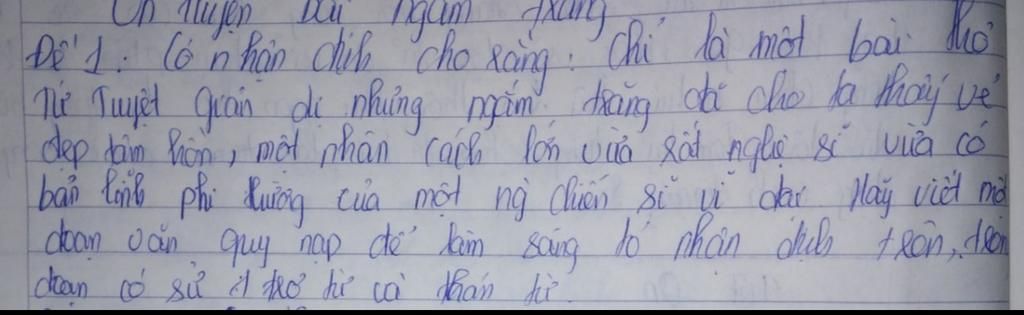 Ôn luyện bài ngắm trăng
Đề 1: Có nhận định cho rằng: Chỉ là một bài thơ
Tứ Tuyệt giản dị nhưng ngắm trăng đã cho ta thấy vẻ
đẹp tâm hồn, một nhân cách lớn vừa rất nghệ sĩ vừa có
bản lĩnh phi thường của một ng chiến sĩ vĩ đại. Hãy viết mộ
đoạn văn quy nạp để làm sáng tỏ nhận định trên, tron
đoạn có sử d trợ từ và thán từ.